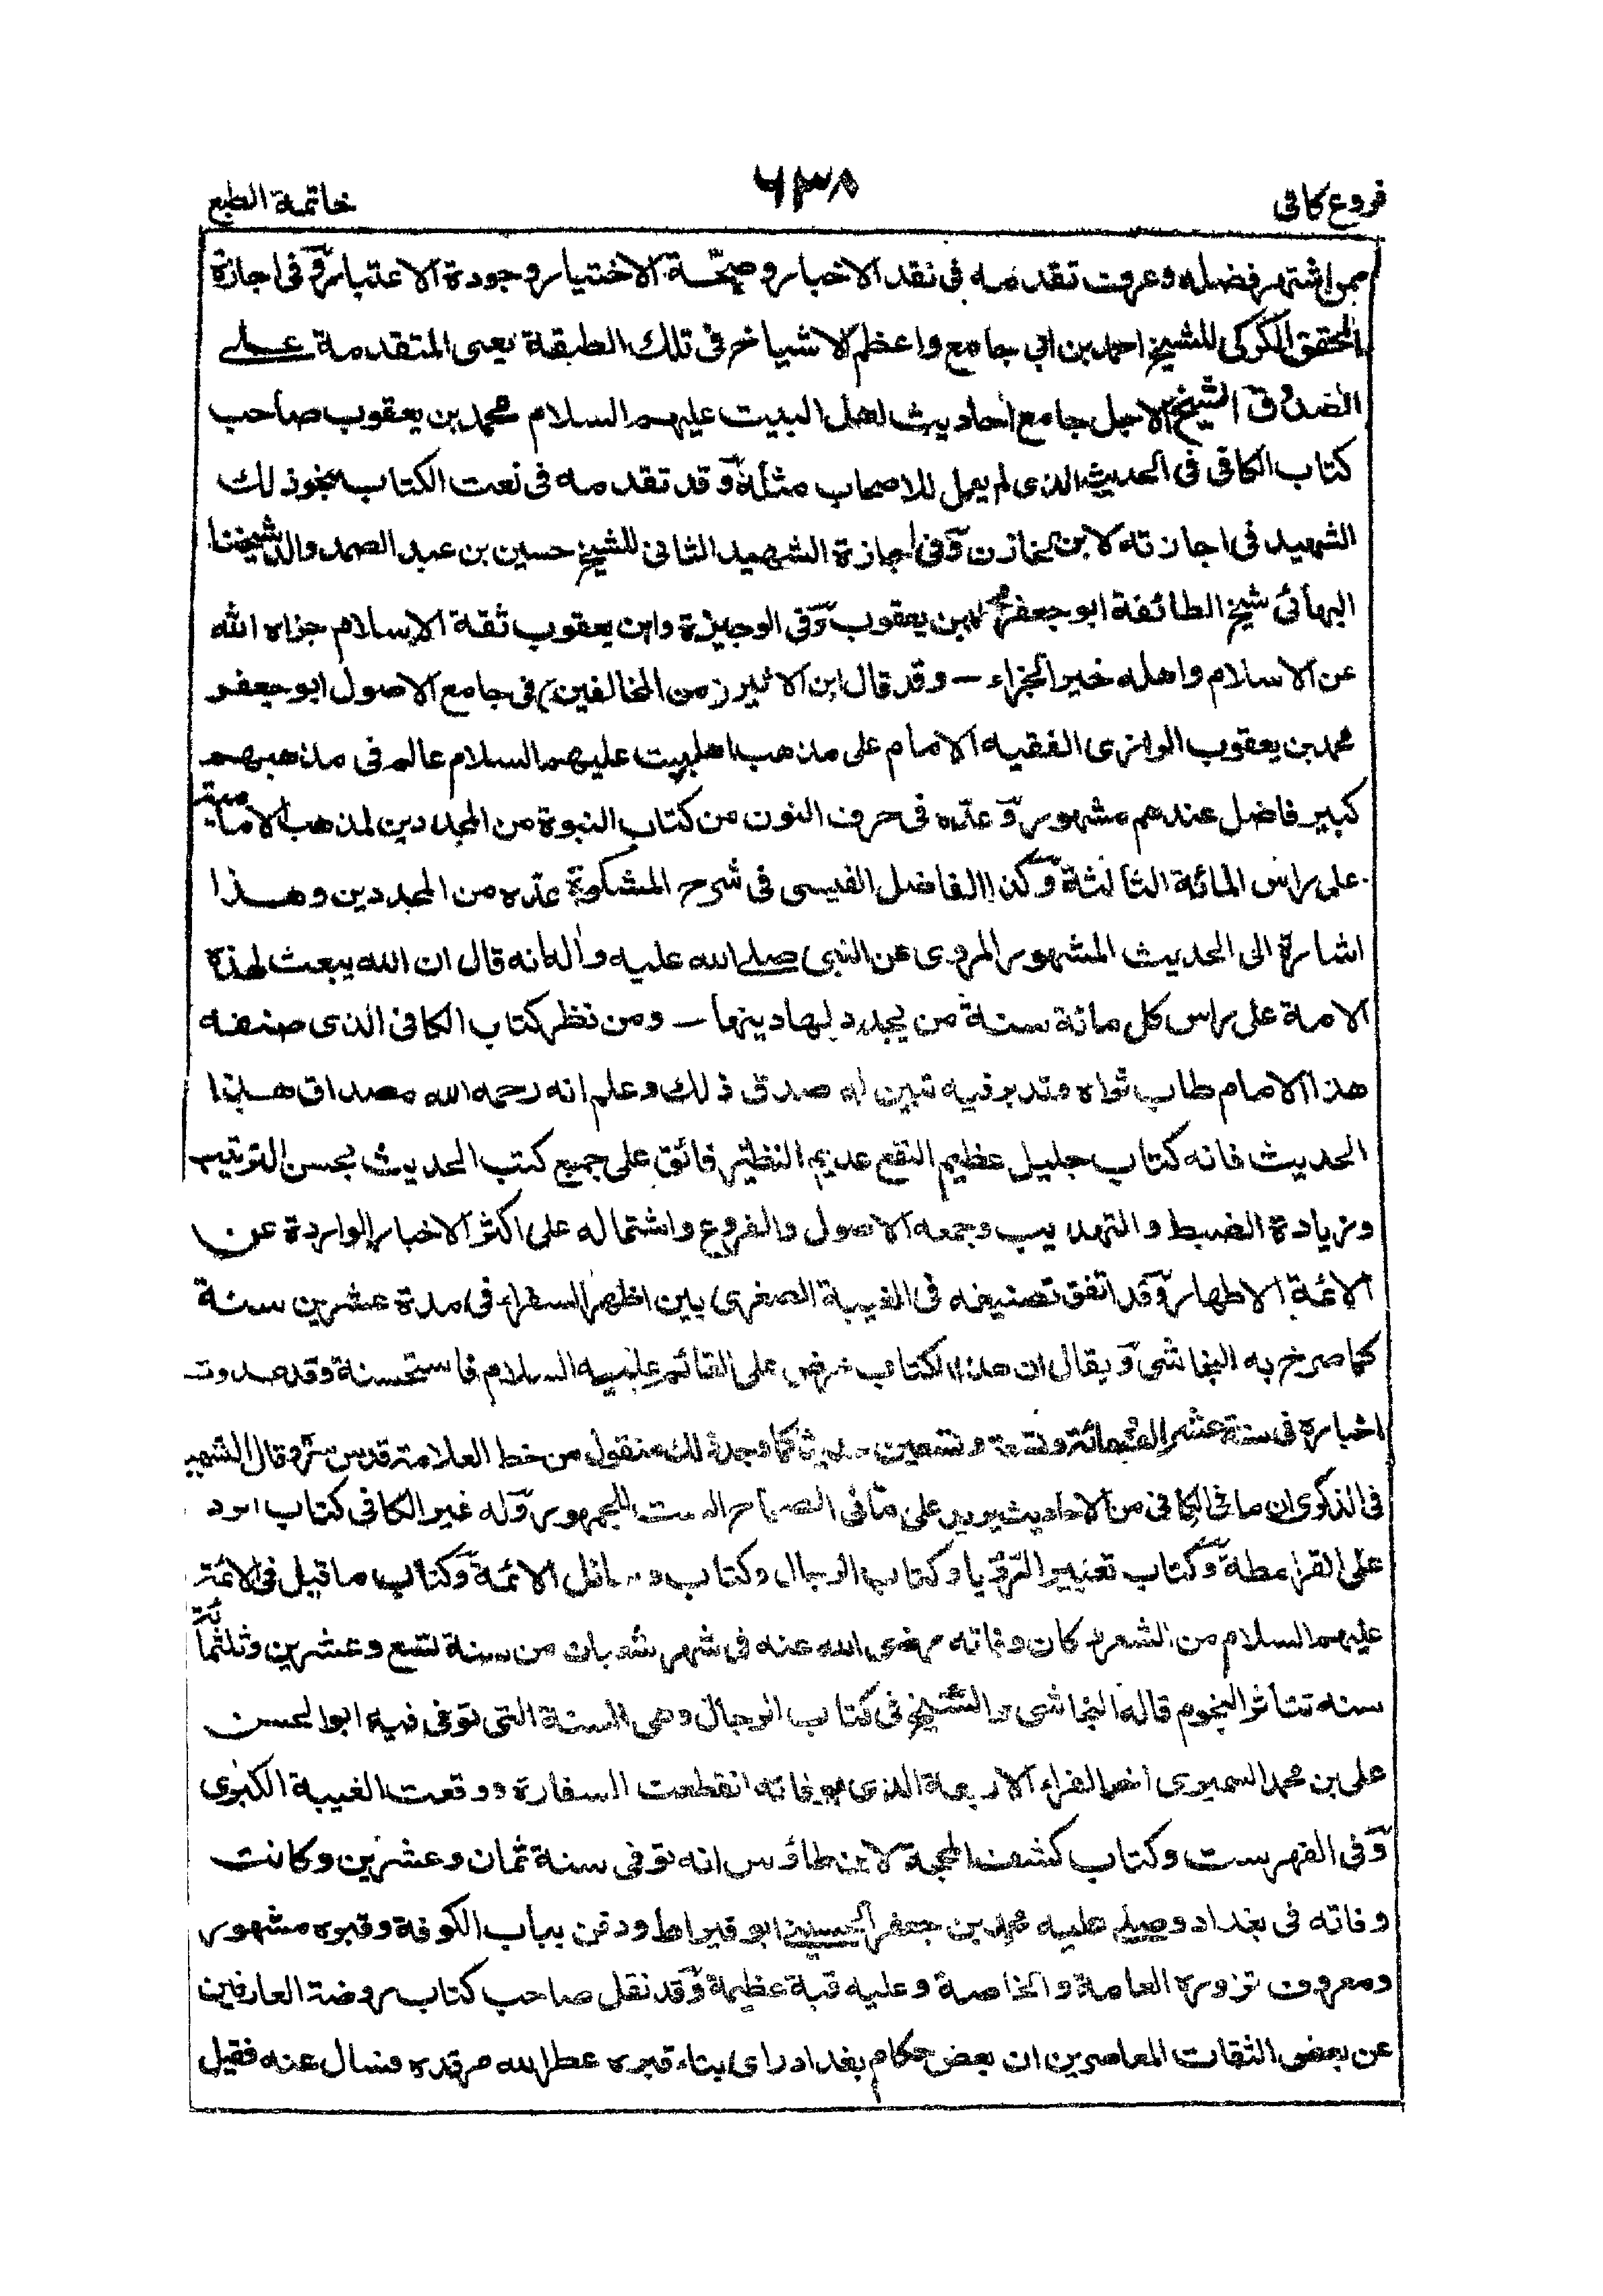 فروع كافى
٦٣٨
خاتمة الطبع
ممن اشتهر فضله وعرف تقدمه فى نقد الاخبار وصحّة الاختيار وجودة الاعتبار وفى اجازة
المحقق الكركى للشيخ احمد بن ابى جامع واعظم الاشياخ فى تلك الطبقة يعنى المتقدمة على
الصدوق الشيخ الاجل جامع احاديث اهل البيت عليهم السلام محمد بن يعقوب صاحب
كتاب الكافى فى الحديث الذى لم يعمل للاصحاب مثله وقد تقدمه فى نعت الكتاب بنحو ذلك
الشهيد فى اجازته لابن الخازن وفى اجازة الشهيد الثانى للشيخ حسين بن عبد الصمد والد شيخنا
البهائى شيخ الطائفة ابو جعفر محمد بن يعقوب وفى الوجيزة وابن يعقوب ثقة الاسلام جزاه الله
عن الاسلام واهله خير الجزاء — وقد قال ابن الاثير (من المخالفين) فى جامع الاصول ابو جعفر
محمد بن يعقوب الرازى الفقيه الامام على مذهب اهلبيت عليهم السلام عالم فى مذهبهم
كبير فاضل عندهم مشهور وعدّه فى حرف النون من كتاب النبوة من المجددين لمذهب الامامية
على راس المائة الثالثة وكذا الفاضل الطيبى فى شرح المشكوة عدّه من المجددين وهذا
اشارة الى الحديث المشهور المروى عن النبى صلى الله عليه واله انه قال ان الله يبعث لهذه
الامة على راس كل مائة سنة من يجدد لها دينها — ومن نظر كتاب الكافى الذى صنفه
هذا الامام طاب ثواه وتدبر فيه تبين له صدق ذلك وعلم انه رحمه الله مصداق هذا
الحديث فانه كتاب جليل عظيم النفع عديم النظير فائق على جميع كتب الحديث بحسن الترتيب
وزيادة الضبط والتهذيب وجمعه الاصول والفروع واشتماله على اكثر الاخبار الواردة عن
الائمة الاطهار وقد اتفق تصنيفه فى الغيبة الصغرى بين اظهر السفراء فى مدة عشرين سنة
كما صرح به النجاشى ويقال ان هذا الكتاب عرض على القائم عليه السلام فاستحسنه وقد حدوت
اخباره فى ستة عشر الف ومائة وتسعة وتسعين حديثا كما وجد ذلك منقول من خط العلامة قدس سره وقال الشهيد
فى الذكرى ان ما فى الكافى من الاحاديث يزيد على ما فى الصحاح الست للجمهور وله غير الكافى كتاب الرد
على القرامطة وكتاب تعبير الرؤيا وكتاب الرجال وكتاب رسائل الائمة وكتاب ما قيل فى الائمة
عليهم السلام من الشعر كان وفاته رضى الله عنه فى شهر شعبان من سنة تسع وعشرين وثلثمائة
سنة تناثر النجوم قاله النجاشى والشيخ فى كتاب الرجال وهى السنة التى توفى فيها ابو الحسن
على بن محمد السميرى اخر السفراء الاربعة الذى بوفاته انقطعت السفارة ووقعت الغيبة الكبرى
وفى الفهرست وكتاب كشف المحجة لابن طاؤس انه توفى سنة ثمان وعشرين وكانت
وفاته فى بغداد وصلى عليه محمد بن جعفر الحسينى ابو قيراط ودفن بباب الكوفة وقبره مشهور
ومعروف تزوره العامة والخاصة وعليه قبة عظيمة وقد نقل صاحب كتاب روضة العارفين
عن بعض الثقات المعاصرين ان بعض حكام بغداد راى بناء قبره عطر الله مرقده فسال عنه فقيل